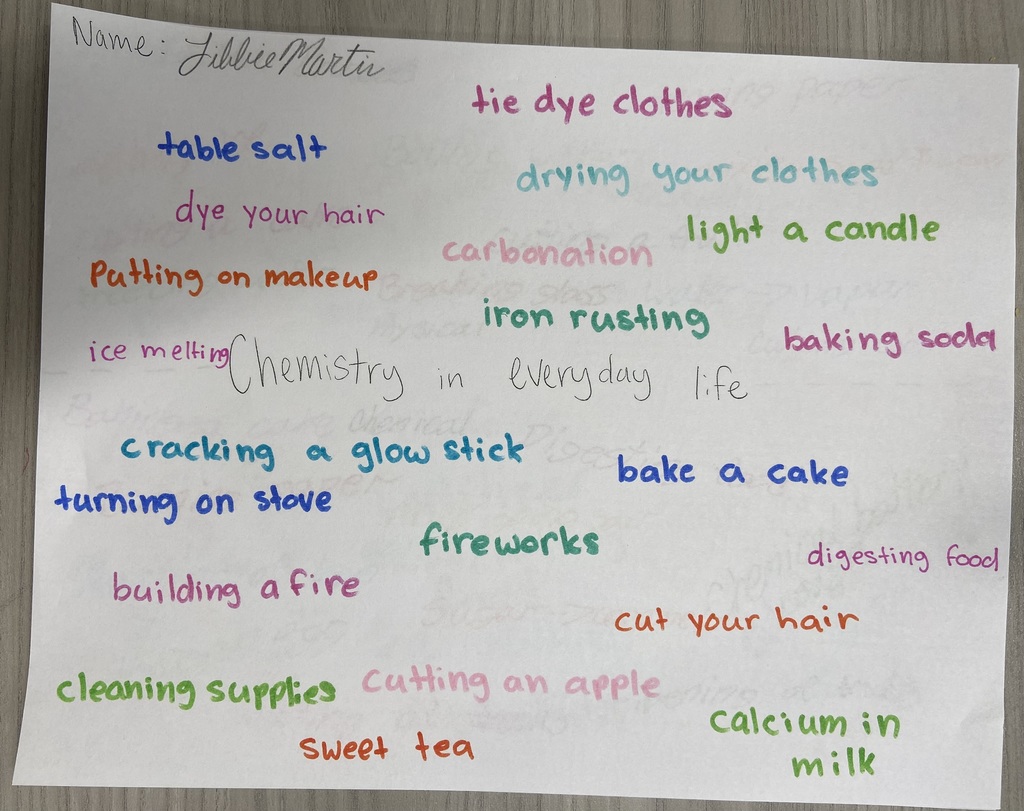 Name: Libbie Martin
tie dye clothes
table salt
drying your clothes
dye your hair
light a candle
carbonation
Putting on makeup
iron rusting
baking soda
ice melting
Chemistry in everyday life
cracking a glow stick
bake a cake
turning on stove
fireworks
digesting food
building a fire
cut your hair
cleaning supplies
cutting an apple
calcium in
milk
sweet tea